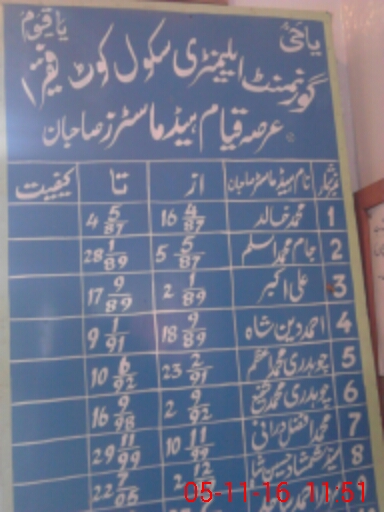 یا حیُّ یا قیّوم
گورنمنٹ ایلیمنٹری سکول کوٹ
عرصہ قیام ہیڈ ماسٹرز صاحبان
نمبر شمار نام ہیڈ ماسٹر صاحبان از تا کیفیت
1 محمد خالد 16 4/87 4 5/87
2 جام محمد اسلم 5 5/87 28 1/89
3 علی اکبر 2 1/89 17 9/89
4 احمد دین شاہ 18 9/89 9 1/91
5 چوہدری محمد اعظم 23 2/91 10 6/92
6 چوہدری محمد شفیع 2 9/92 16 9/98
7 محمد افضل درانی 10 11/99 29 11/99
8 سید شمشاد حسین شاہ 2 12 22 7/05
05-11-16 11:51